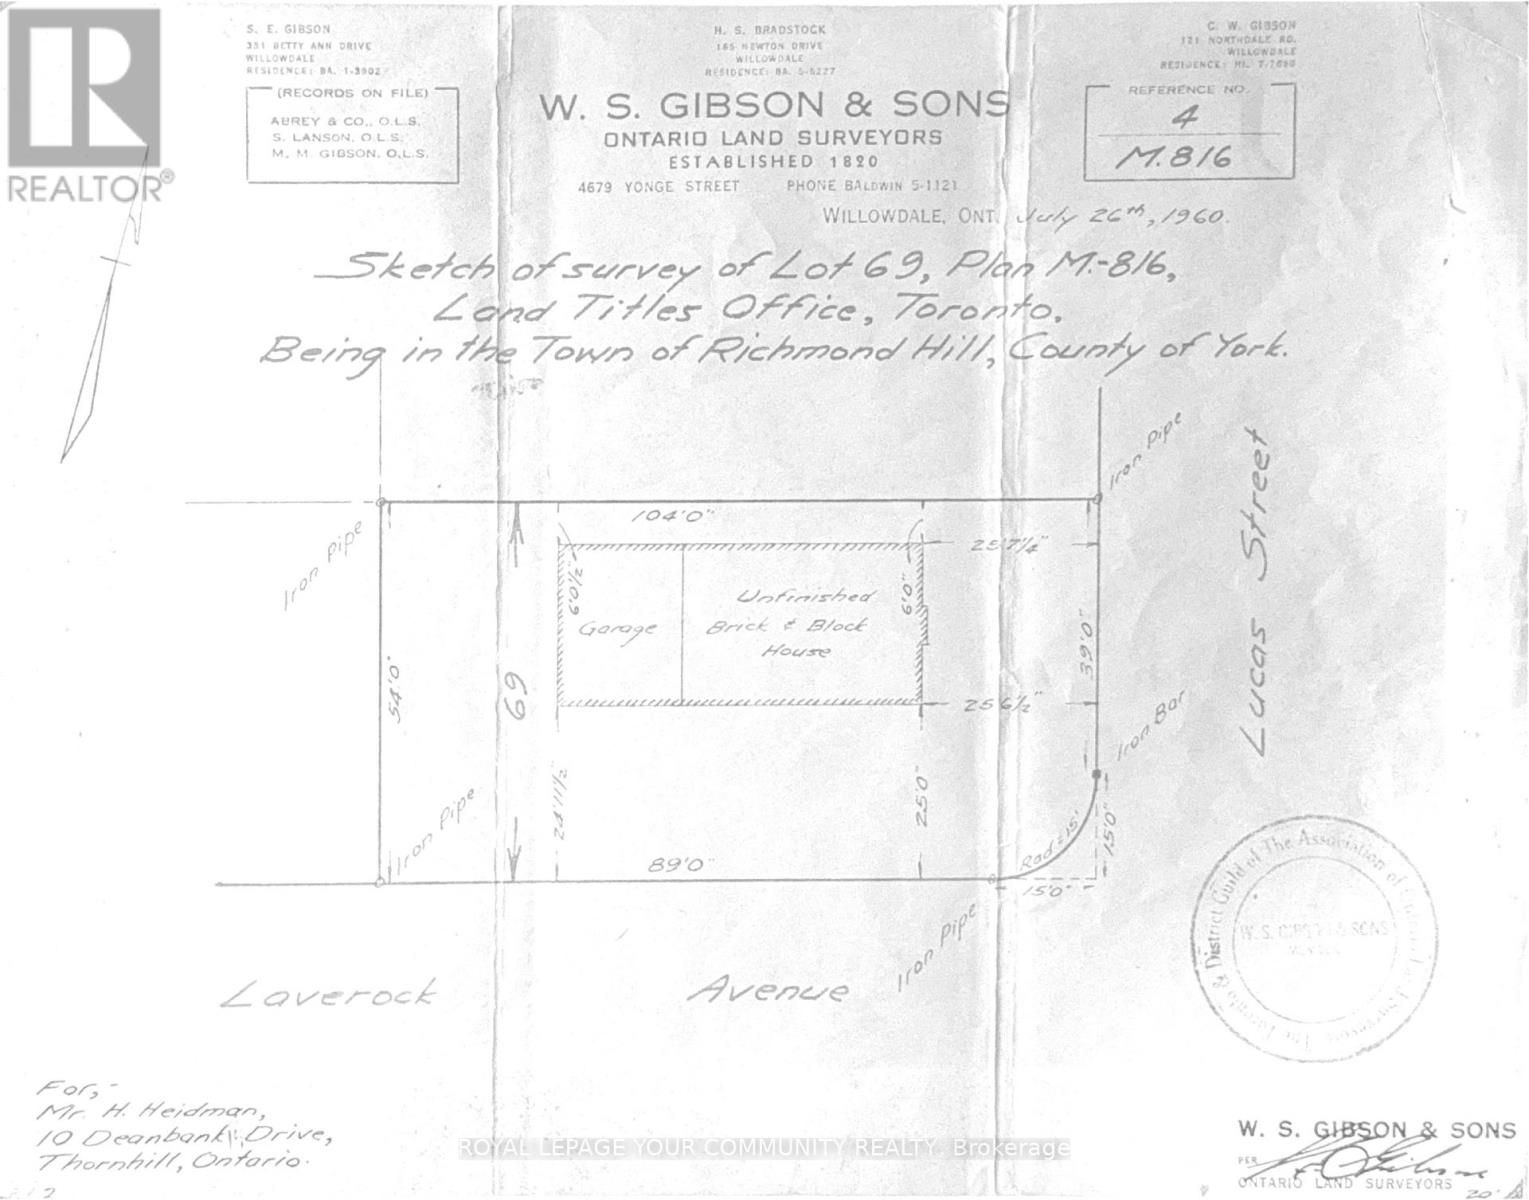 S. E. GIBSON
331 BETTY ANN DRIVE
WILLOWDALE
RESIDENCE: BA. 1-3902
H. S. BRADSTOCK
165 NEWTON DRIVE
WILLOWDALE
RESIDENCE: BA. 5-6227
C. W. GIBSON
121 NORTHDALE RD.
WILLOWDALE
RESIDENCE: HI.
REALTOR®
(RECORDS ON FILE)
ABREY & CO., O.L.S.
S. LANSON, O.L.S.
M. M. GIBSON, O.L.S.
W. S. GIBSON & SONS
ONTARIO LAND SURVEYORS
ESTABLISHED 1820
4679 YONGE STREET PHONE BALDWIN 5-1121
REFERENCE NO.
4
M.816
WILLOWDALE, ONT. July 26th, 1960.
Sketch of survey of Lot 69, Plan M.-816,
Land Titles Office, Toronto.
Being in the Town of Richmond Hill, County of York.
Iron Pipe
104'0"
25'7¼"
Iron Pipe
6'0½"
6'0"
Unfinished
Garage
Brick & Block
House
Lucas Street
54'0"
69
39'0"
25'6½"
Iron Bar
24'11½"
25'0"
Iron Pipe
Rad=15'
15'0"
89'0"
15'0"
Iron Pipe
Laverock Avenue
District Guild of The Association of
W. S. GIBSON & SONS
For,-
Mr. H. Heidman,
10 Deanbank Drive,
Thornhill, Ontario.
ROYAL LEPAGE YOUR COMMUNITY REALTY, Brokerage
W. S. GIBSON & SONS
PER
ONTARIO LAND SURVEYORS
20'